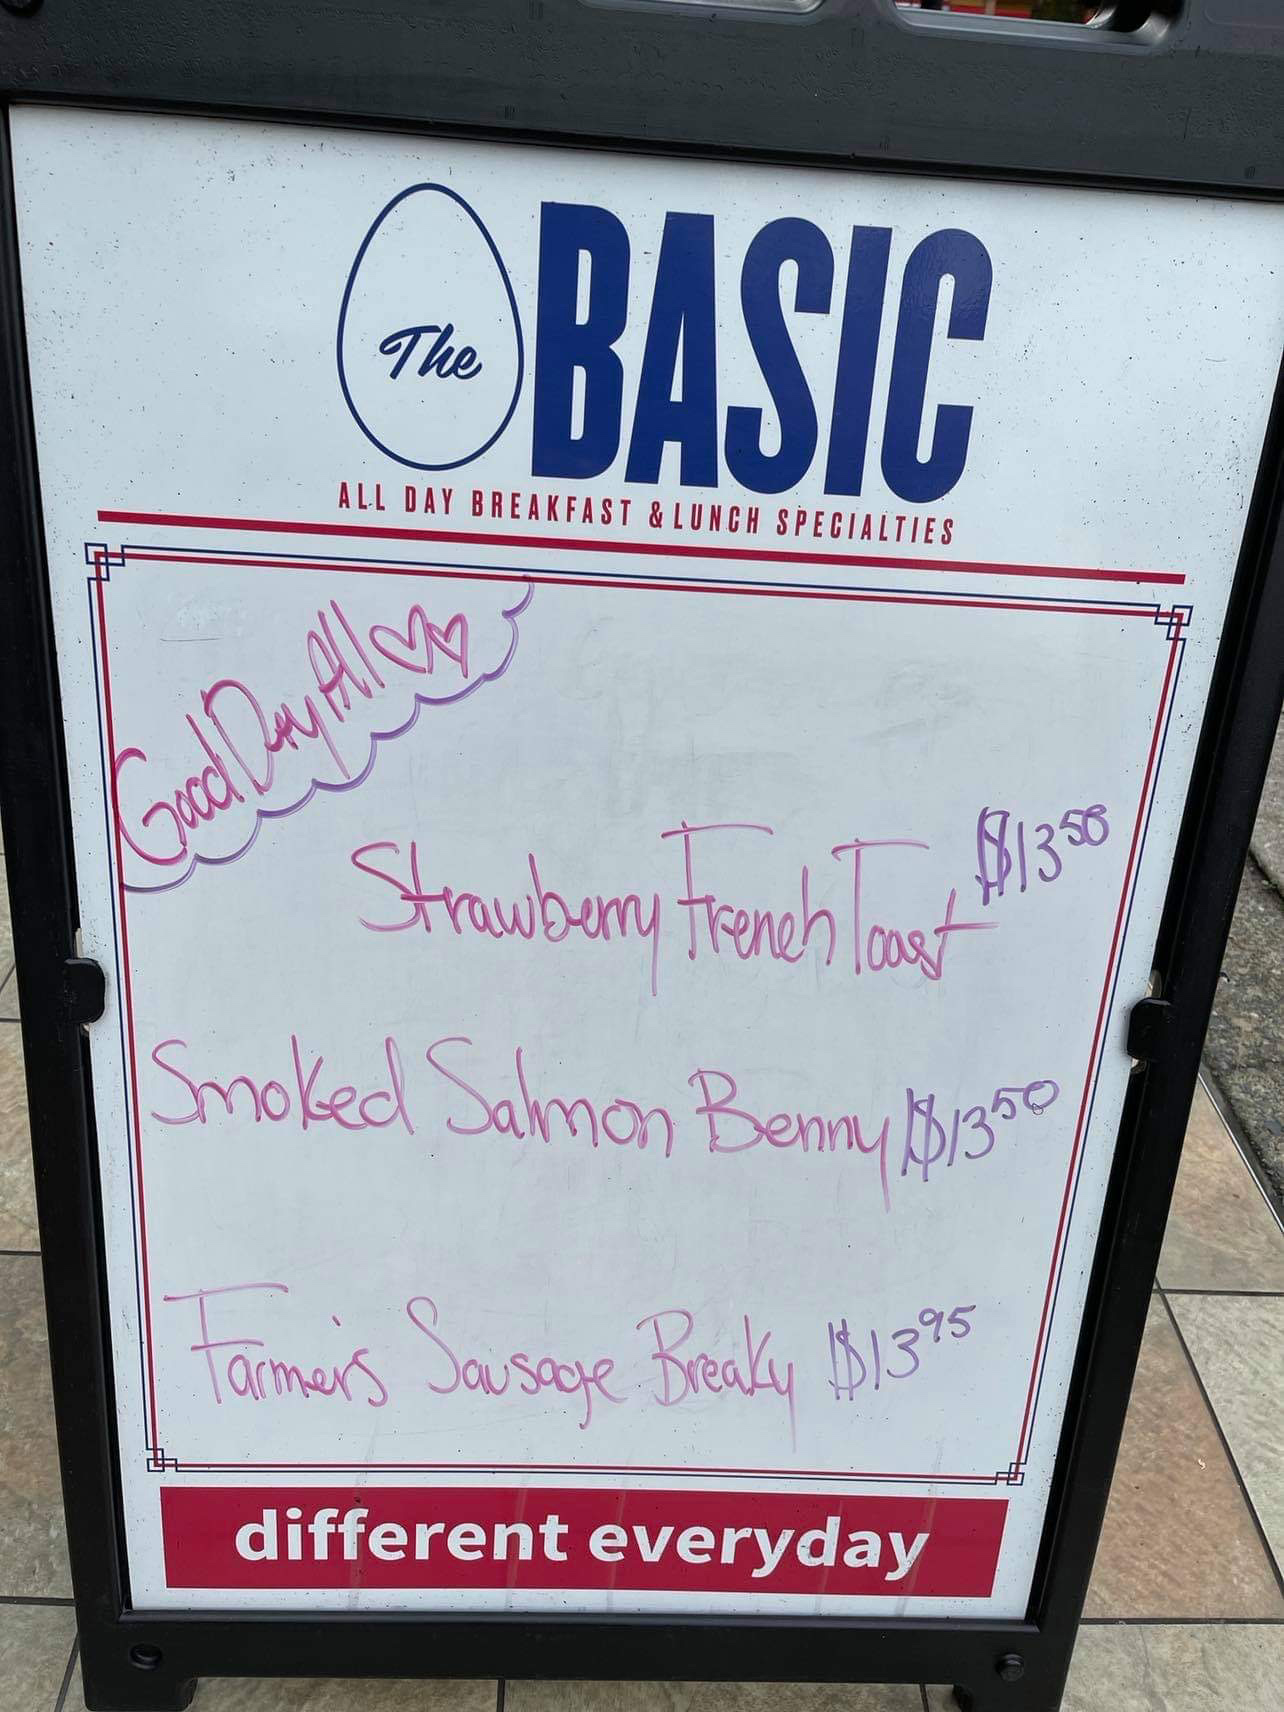 The BASIC
ALL DAY BREAKFAST & LUNCH SPECIALTIES
Good Day All
Strawberry French Toast $13 50
Smoked Salmon Benny $13 50
Farmer's Sausage Breaky $13 95
different everyday